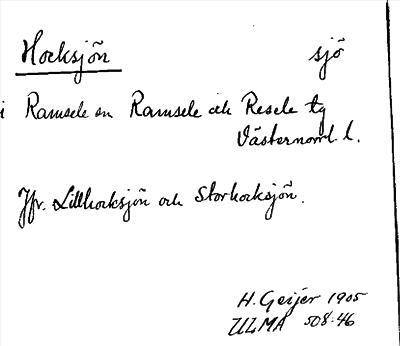 Hocksjön sjö
i Ramsele sn Ramsele och Resele tg
Västernorrl. l.
Jfr. Lillhocksjön och Storhocksjön.
H. Geijer 1905
ULMA 508:46